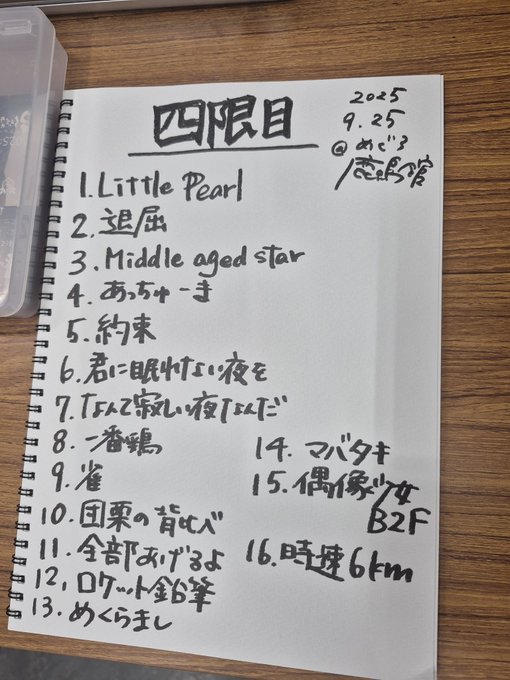 四限目
2025
9.25
@めぐろ
鹿鳴館
1. Little Pearl
2. 退屈
3. Middle aged star
4. あっちゅーま
5. 約束
6. 君に眠れない夜を
7. なんて寂しい夜なんだ
8. 一番鶏
9. 雀
10. 団栗の背比べ
11. 全部あげるよ
12. ロケット鉛筆
13. めくらまし
14. マバタキ
15. 偶像少女
B2F
16. 時速6km